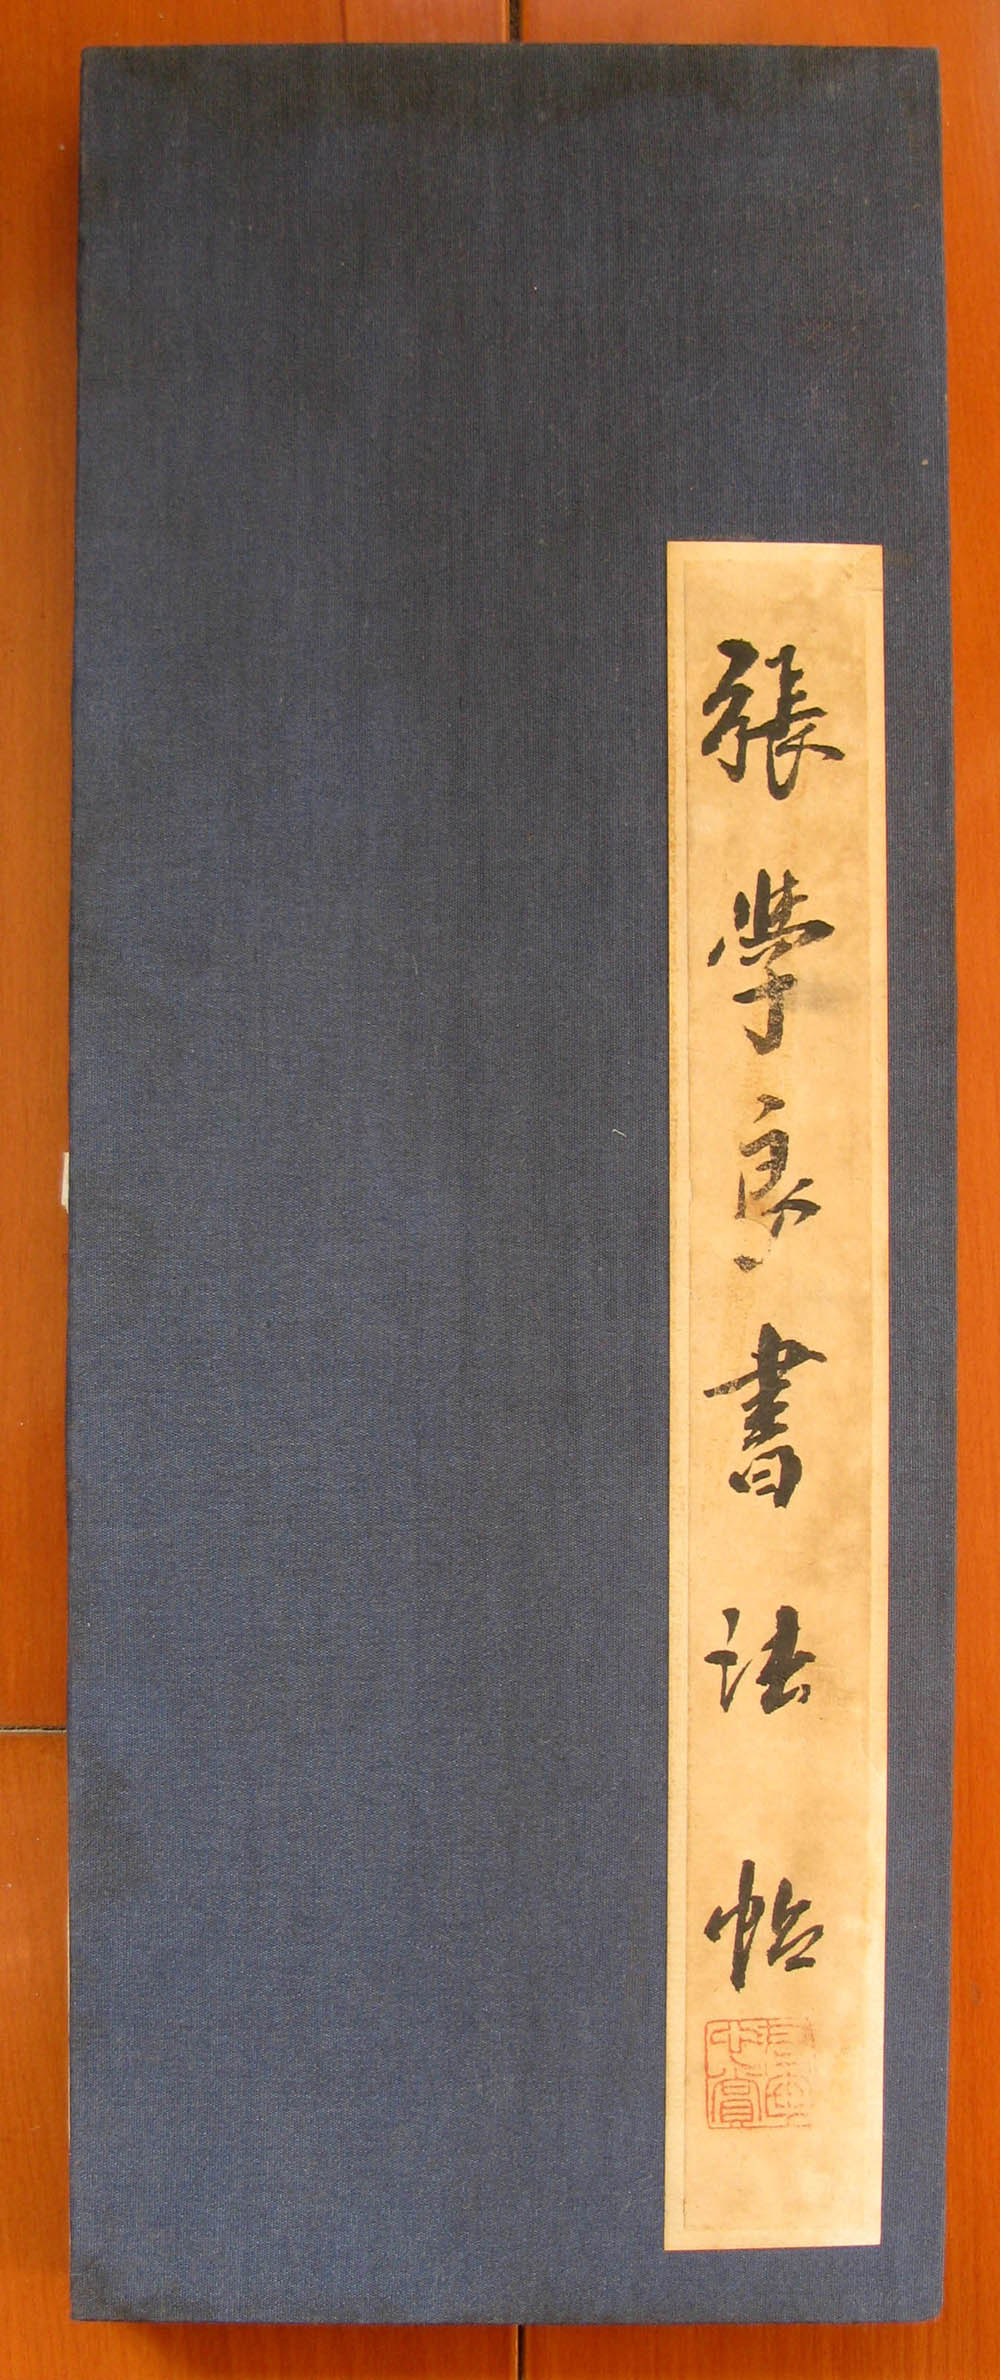 張學良書法帖